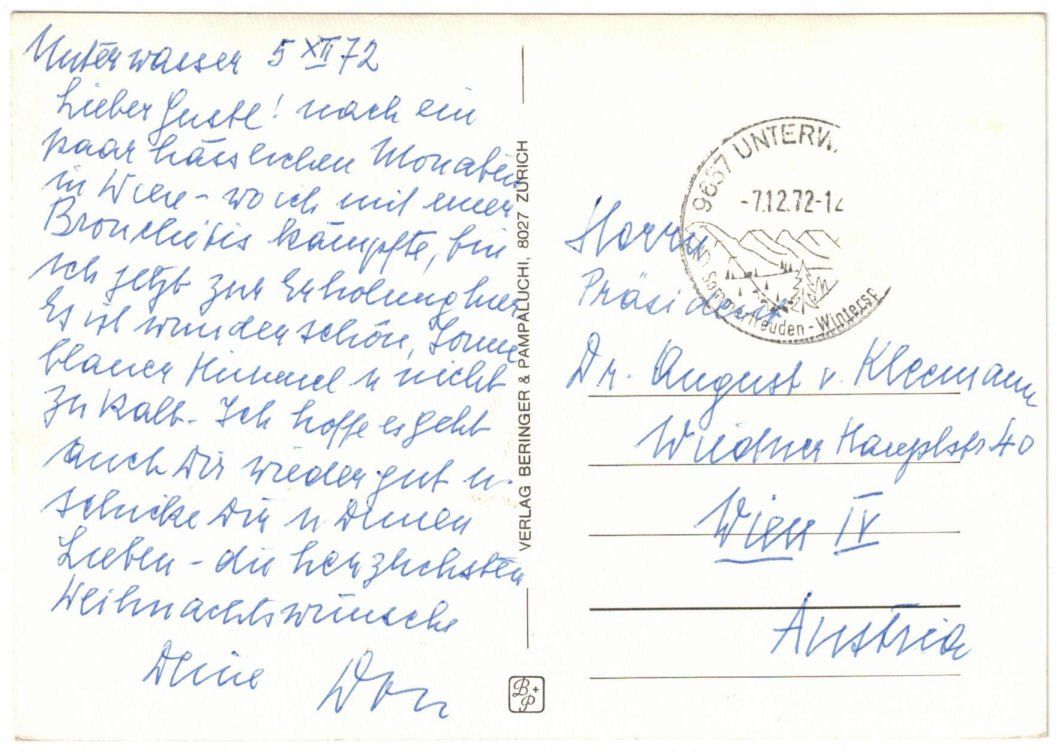 Unterwasser 5 XII 72
Lieber Gustl! nach ein
paar hässlichen Monaten
in Wien - wo ich mit einer
Bronchitis kämpfte, bin
ich jetzt zur Erholung hier
Es ist wunderschön, Sonne
blauer Himmel u nicht
zu kalt. Ich hoffe es geht
auch Dir wieder gut u.
schicke Dir u Deinen
Lieben - die herzlichsten
Weihnachtswünsche
Deine
VERLAG BERINGER & PAMPALUCHI, 8027 ZÜRICH
B+P
9657 UNTERW
-7.12.72-12
Sommerfreuden - Wintersp
Herrn
Präsident
Dr. August v. Kleemann
Wiedner Hauptstr 40
Wien IV
Austria